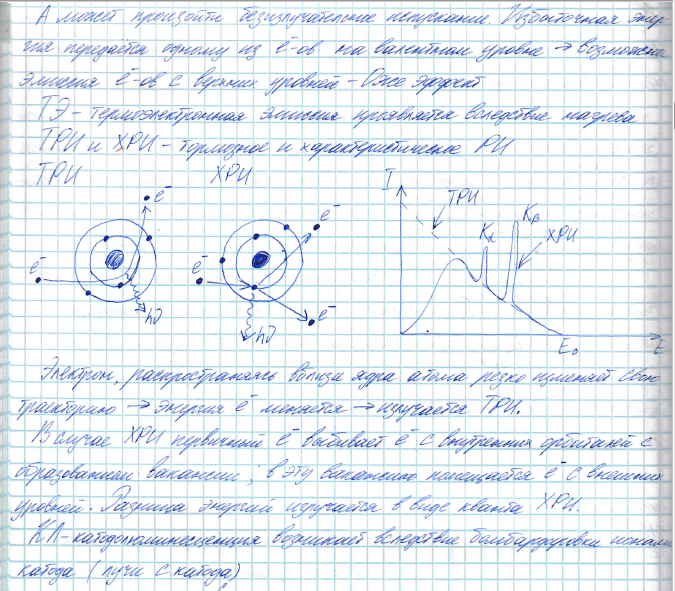 А может произойти безизлучательное испускание. Избыточная энер-
гия передаётся одному из е⁻-ов на валентном уровне → возможна
эмиссия е⁻-ов с верхних уровней – Оже эффект
ТЭ – термоэлектронная эмиссия проявляется вследствие нагрева
ТРИ и ХРИ – тормозное и характеристическое РИ
ТРИ ХРИ
I ТРИ Kα Kβ ХРИ
e⁻ e⁻ e⁻ e⁻
hν hν
E₀ E
Электрон, распространяясь вблизи ядра атома резко изменяет свою
траекторию → энергия е⁻ меняется → излучается ТРИ.
В случае ХРИ первичный е⁻ выбивает е⁻ с внутренних орбиталей с
образованием вакансии; в эту вакансию помещается е⁻ с внешних
уровней. Разница энергий излучается в виде кванта ХРИ.
КЛ – катодолюминесценция возникает вследствие бомбардировки
катода (лучи с катода)